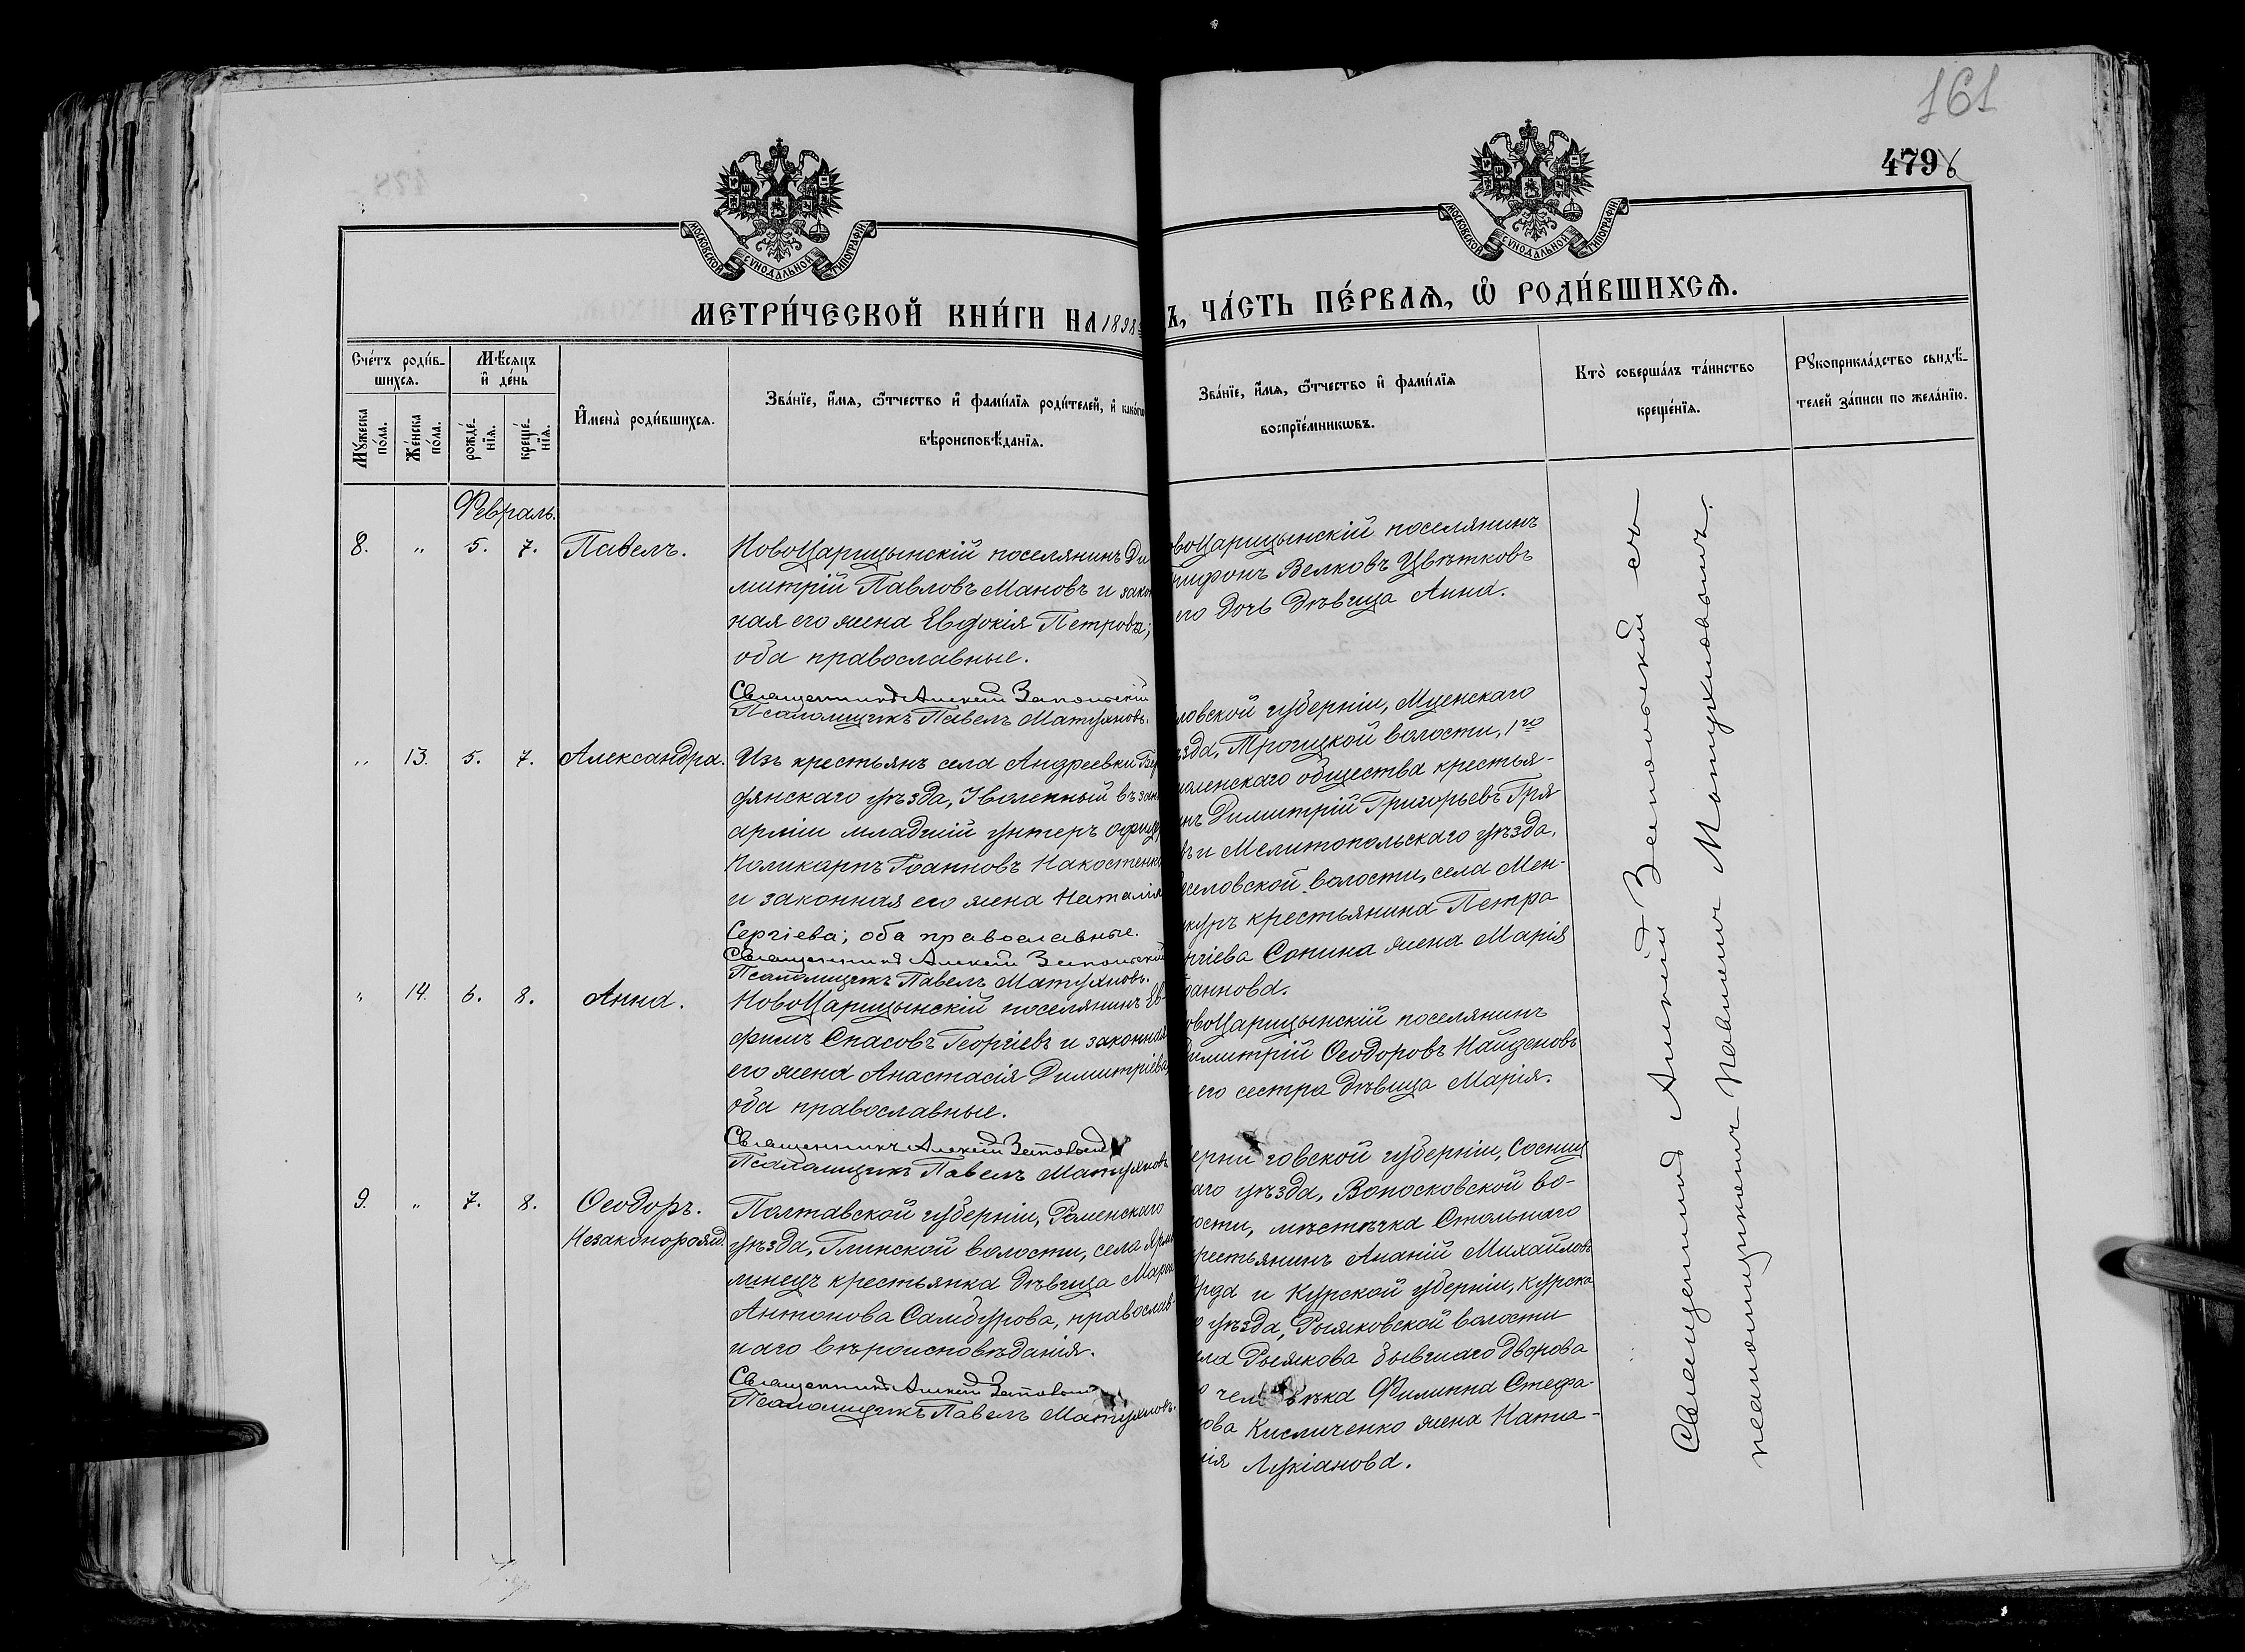 161
479
МОСКОВСКОЙ СѴНОДАЛЬНОЙ ТИПОГРАФІИ
МОСКОВСКОЙ СѴНОДАЛЬНОЙ ТИПОГРАФІИ
МЕТРИ́ЧЕСКОЙ КНИ́ГИ НА 1898
Ъ, ЧА́СТЬ ПЕ́РВАѦ, Ѽ РОДИ́ВШИХСѦ.
Сче́тъ роди́в-
шихсѧ.
Мꙋ́жеска по́ла.
Же́нска по́ла.
Мѣ́сѧцъ
и҆ де́нь
рожде́нїѧ.
креще́нїѧ.
И҆мена̀ роди́вшихсѧ.
Зва́нїе, и҆́мѧ, ѻ҆́тчество и҆ фами́лїѧ роди́телей, и҆ како́гѡ
вѣроисповѣ́данїѧ.
Зва́нїе, и҆́мѧ, ѻ҆́тчество и҆ фами́лїѧ
воспрїе́мникѡвъ.
Кто̀ соверша́лъ та́инство
креще́нїѧ.
Рꙋкоприкла́дство свидѣ́-
телей за́писи по жела́нїю.
Февраль.
8. " 5. 7. Павелъ.
НовоЦарицынскій поселянинъ Ди
митрій Павловъ Мановъ и закон
ная его жена Евдокія Петрова;
оба православные.
Священникъ Алексій Заповскій
Псаломщикъ Павелъ Матуяновъ.
овоЦарицынскій поселянинъ
рифонъ Велковъ Цвѣтковъ
его дочь дѣвица Анна.
" 13. 5. 7. Александра.
Изъ крестьянъ села Андреевки Бер
дянскаго уѣзда, Уволенный въ зап
арміи младшій унтеръ офицер
Поликарпъ Іоанновъ Накостенко
и законная его жена Наталія
Сергіева; оба православные.
Священникъ Алексій Заповскій
Псаломщикъ Павелъ Матуяновъ.
ловской губерніи, Мценскаго
ѣзда, Троицкой волости, 1го
моленскаго общества крестья-
инъ Димитрій Григорьевъ Гря
въ и Мелитопольскаго уѣзда,
еселовской волости, села Мен-
икуръ крестьянина Петра
ргіева Сопина жена Марія
Іоаннова.
" 14. 6. 8. Анна.
НовоЦарицынскій поселянинъ Ев-
фимъ Спасовъ Георгіевъ и законная
его жена Анастасія Димитріева,
оба православные.
Священникъ Алексій Заповскій
Псаломщикъ Павелъ Матуяновъ
овоЦарицынскій поселянинъ
Димитрій Ѳеодоровъ Найденовъ
и его сестра дѣвица Марія.
9. " 7. 8. Ѳеодоръ.
Незаконорожд.
Полтавской губерніи, Роменскаго
уѣзда, Глинской волости, села Ярми
линецъ крестьянка дѣвица Марія
Антонова Самбурова, православ-
наго вѣроисповѣданія.
Священникъ Алексій Заповскій
Псаломщикъ Павелъ Матуяновъ.
ерниговской губерніи, Сосниц
аго уѣзда, Волосковской во-
ости, мѣстечка Стольнаго
рестьянинъ Ананій Михайловъ
урда и Курской губерніи, Курска
о уѣзда, Рыжковской волости
ела Рыжкова бывшаго дворова
о человѣка Филиппа Стефа-
нова Кисличенко жена Ната-
лія Лукіанова.
Священникъ Алексій Заповскій съ
псаломщикомъ Павломъ Матуяновымъ.